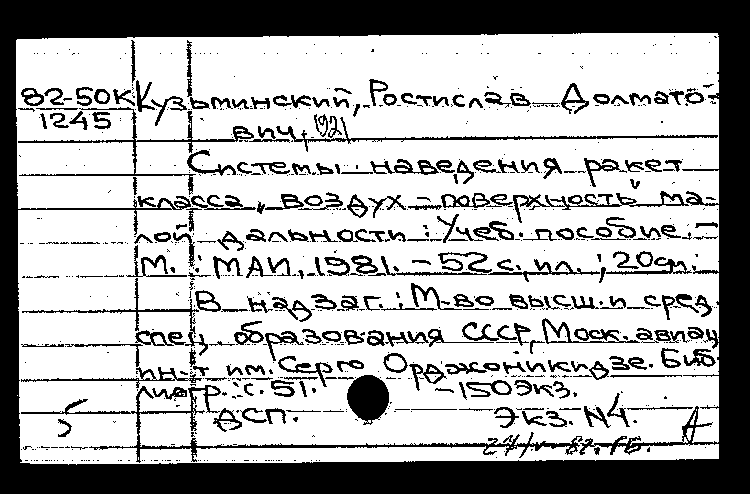 82-50К Кузьминский, Ростислав Долмато-
1245 вич, 1921
Системы наведения ракет
класса "воздух - поверхность" ма-
лой дальности : Учеб. пособие. -
М. : МАИ, 1981. - 52 с., ил. ; 20 см.
В надзаг. : М-во высш. и сред.
спец. образования СССР, Моск. авиац.
ин-т им. Серго Орджоникидзе. Биб-
лиогр. : с. 51. - 150 экз.
ДСП. Экз. N4.